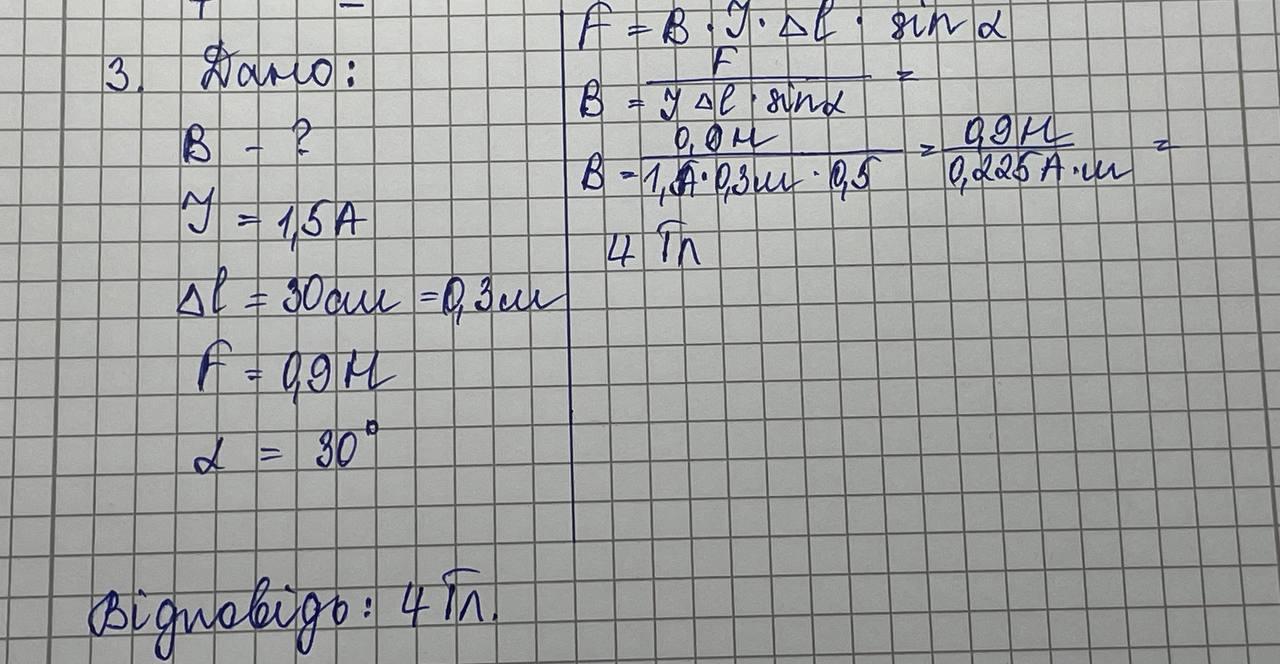 3. Дано:
B - ?
I = 1,5 А
Δl = 30 см = 0,3 м
F = 0,9 Н
α = 30°
F = B · I · Δl · sin α
B = F / I Δl · sin α =
B = 0,9 Н / 1,5 А · 0,3 м · 0,5 = 0,9 Н / 0,225 А · м =
4 Тл
Відповідь: 4 Тл.